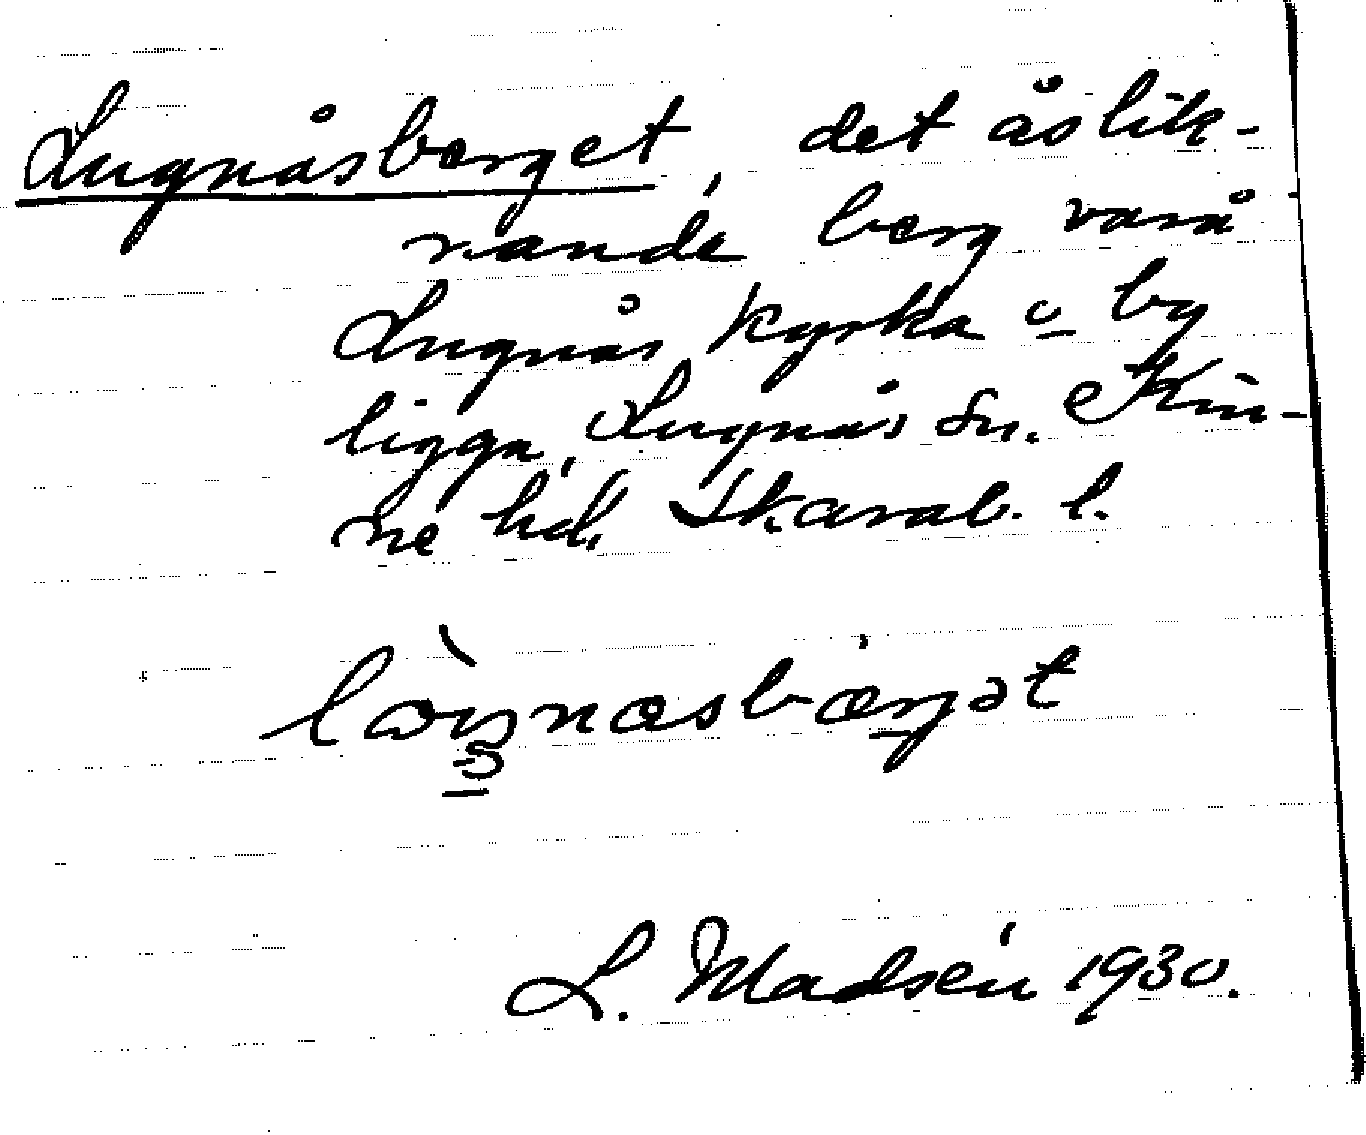 Lugnåsberget, det åslik-
nande berg varå
Lugnås kyrka o by
ligga, Lugnås sn. Kin-
ne hd, Skarab. l.
L. Madsén 1930.